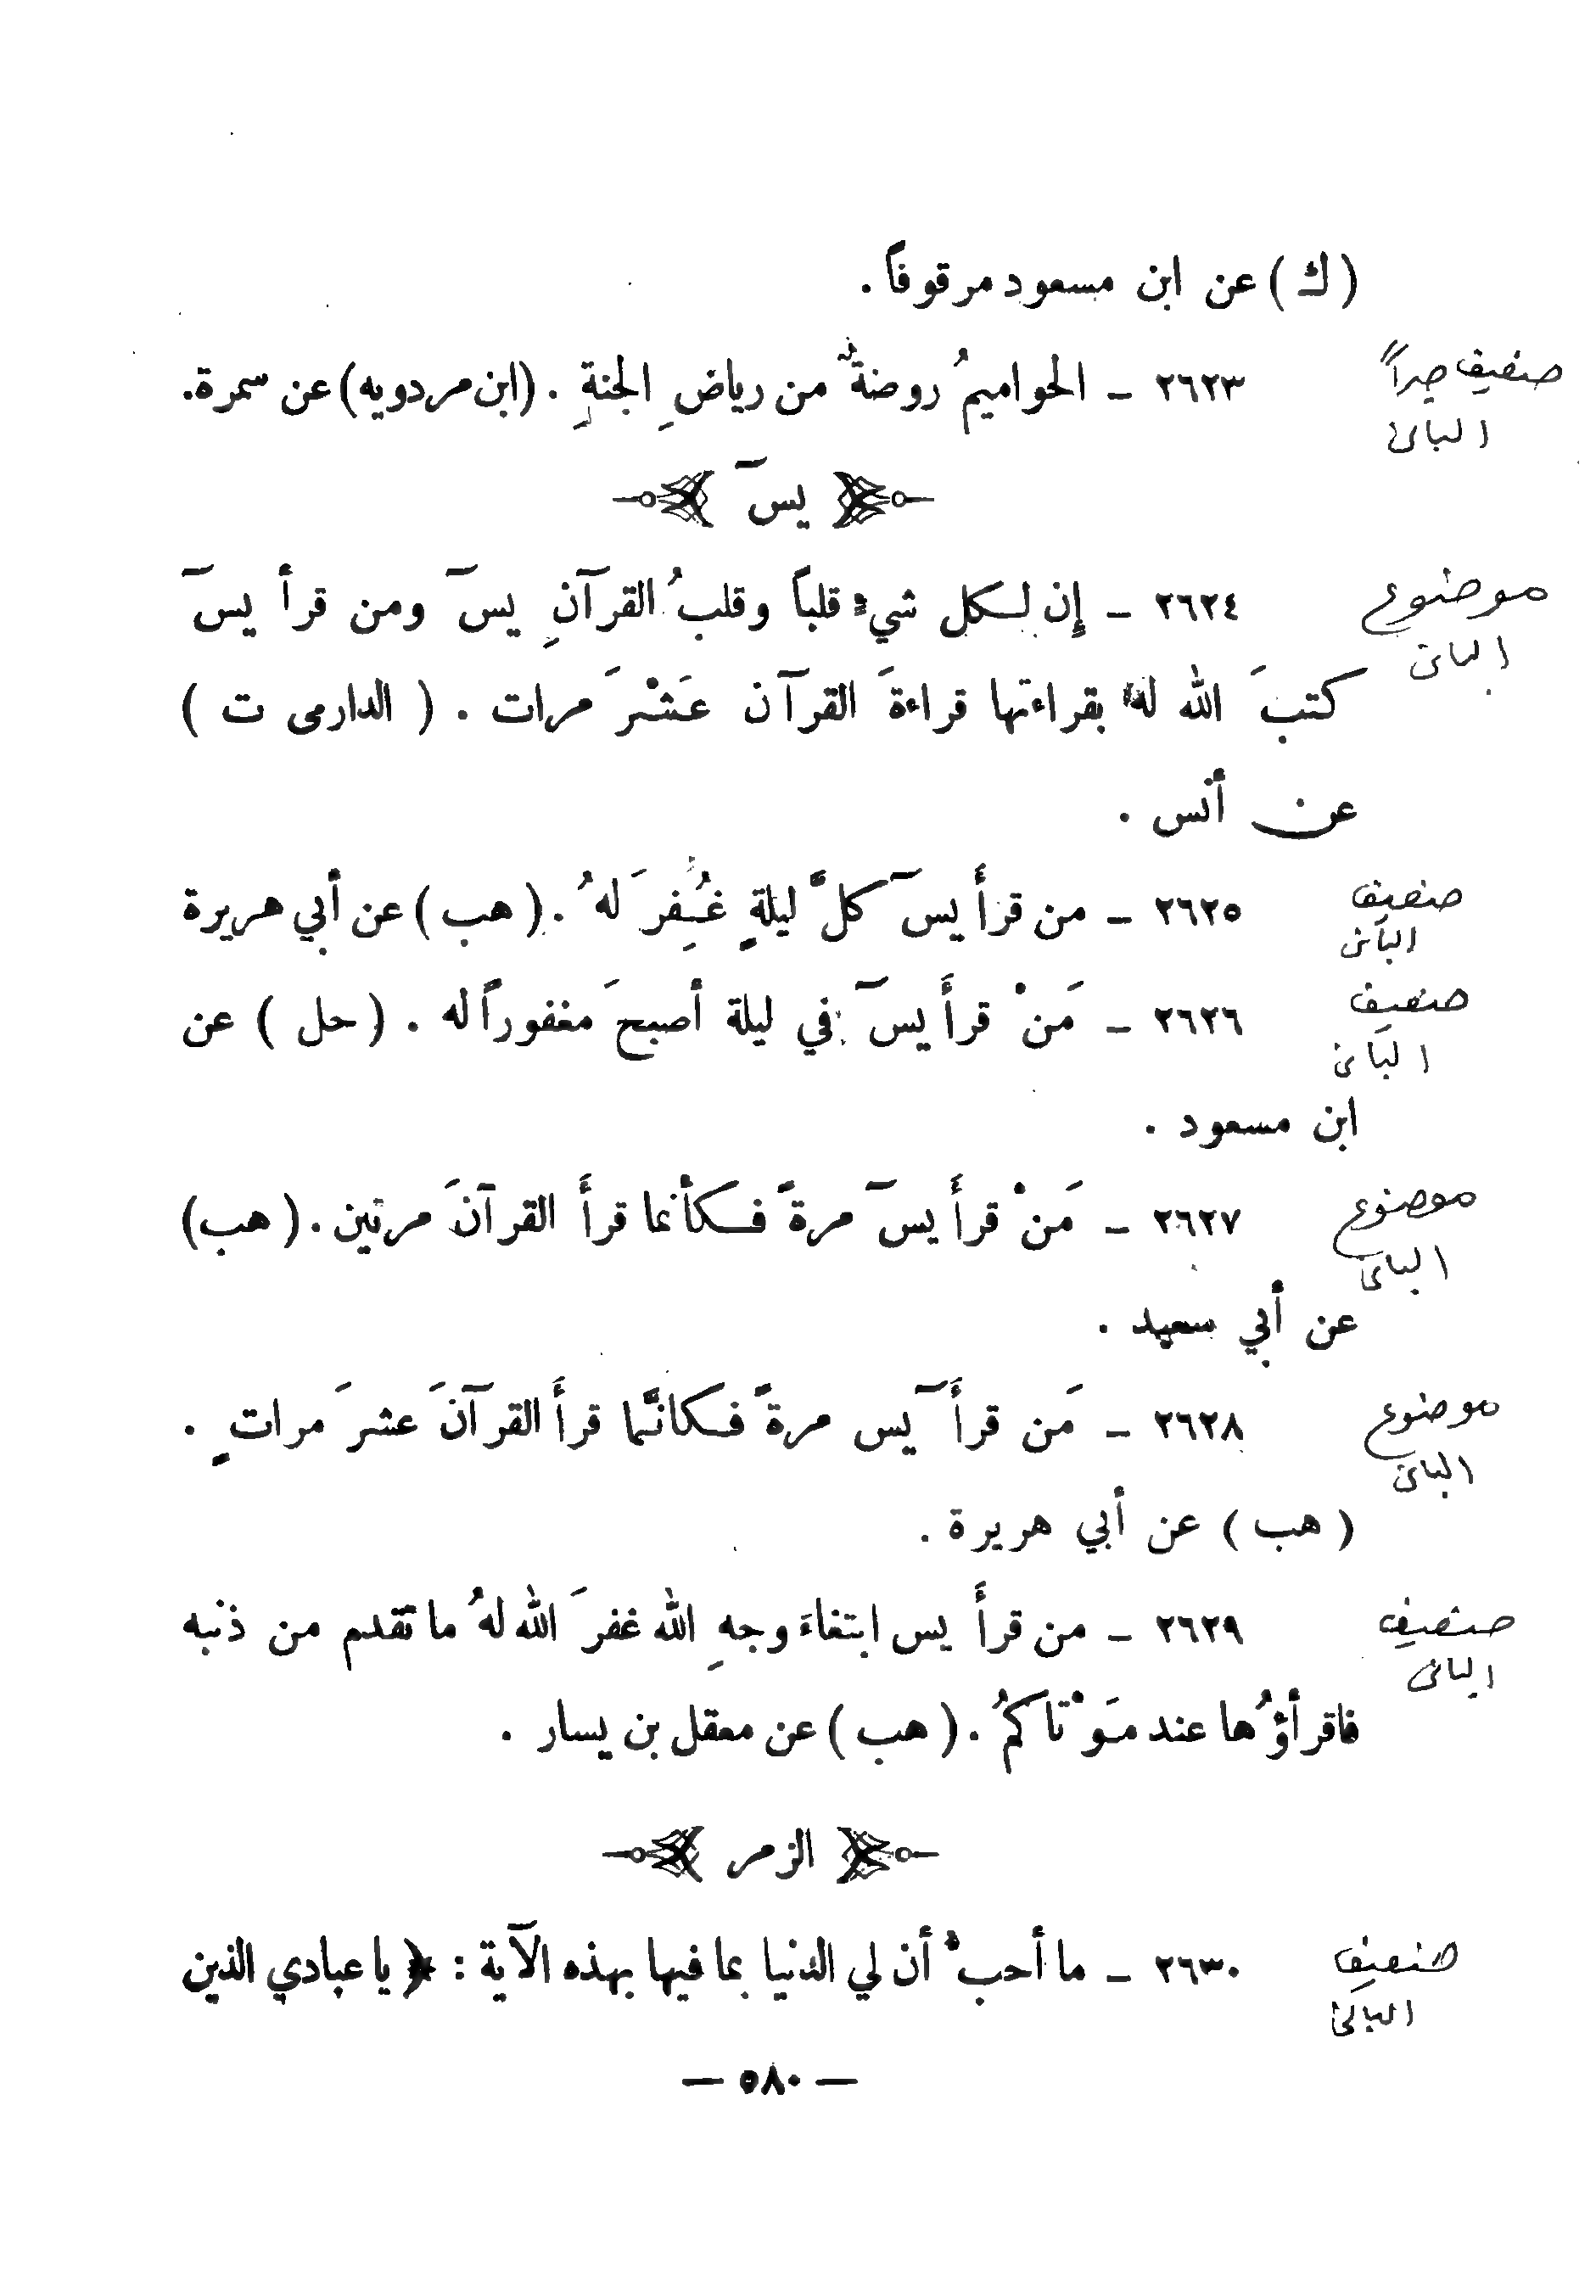 ( ك ) عن ابن مسعود مرقوفاً .
ضعيف جداً
٢٦٢٣ ـ الحواميمُ روضةٌ من رياضِ الجنةِ . (ابن مردويه) عن سمرة.
البانى
يسٓ
موضوع
٢٦٢٤ ـ إِن لكل شيءٍ قلباً وقلبُ القرآنِ يسٓ ومن قرأ يسٓ
البانى
كتبَ الله لهُ بقراءتها قراءةَ القرآن عَشْرَ مرات . ( الدارمى ت )
عن أنس .
ضعيف
٢٦٢٥ ـ من قرأَ يسٓ كلَّ ليلةٍ غُفِرَ لهُ . ( هب ) عن أبي هريرة
البانى
ضعيف
٢٦٢٦ ـ مَنْ قرأَ يسٓ في ليلة أصبحَ مغفوراً له . ( حل ) عن
البانى
ابن مسعود .
موضوع
٢٦٢٧ ـ مَنْ قرأَ يسٓ مرةً فكأنما قرأَ القرآنَ مرتين . ( هب)
البانى
عن أبي سعيد .
موضوع
٢٦٢٨ ـ مَن قرأَ يٓس مرةً فكانَّما قرأَ القرآنَ عشرَ مراتٍ .
البانى
( هب ) عن أبي هريرة .
ضعيف
٢٦٢٩ ـ من قرأَ يس ابتغاءَ وجهِ الله غفرَ الله لهُ ما تقدم من ذنبه
البانى
فاقرأؤُها عند مَوْتاكمُ . ( هب ) عن معقل بن يسار .
الزمر
ضعيف
٢٦٣٠ ـ ما أحبُّ أن لي الدُنيا بما فيها بهذه الآية : ﴿ يا عبادي الذين
البانى
— ٥٨٠ —